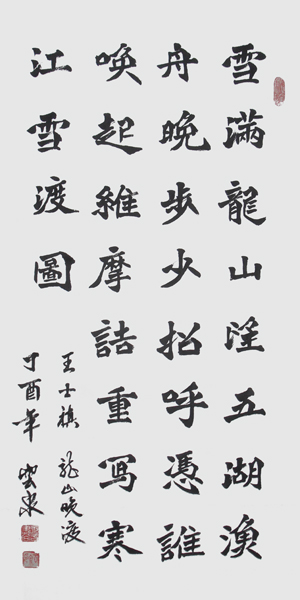 雪滿龍山淫五湖漁
舟晚步少招呼憑誰
喚起維摩詰重寫寒
江雪渡圖
王士祺 龍山晚渡
丁酉年 雲泉